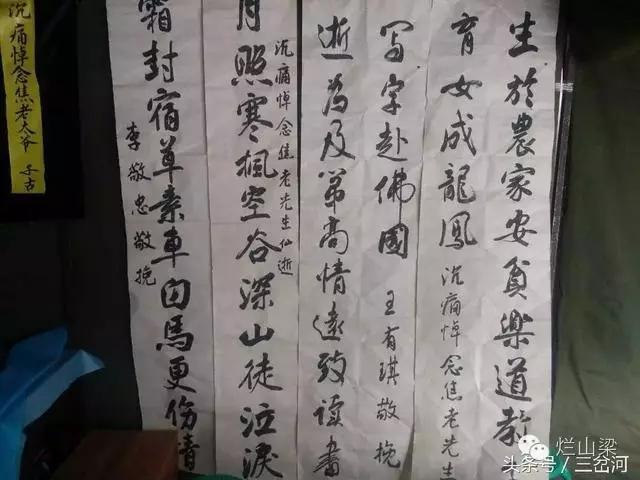 生於農家安貧樂道教
育女成龍鳳
沉痛悼念焦老先生
逝为及第高情遠致读書
写字赴佛國
王有琪敬挽
沉痛悼念焦老先生仙逝
月照寒楓空谷深山徒泣淚
霜封宿草素車白馬更伤情
李敬忠敬挽
沉痛悼念焦老太爷 千古
烂山梁
头条号／三岔河